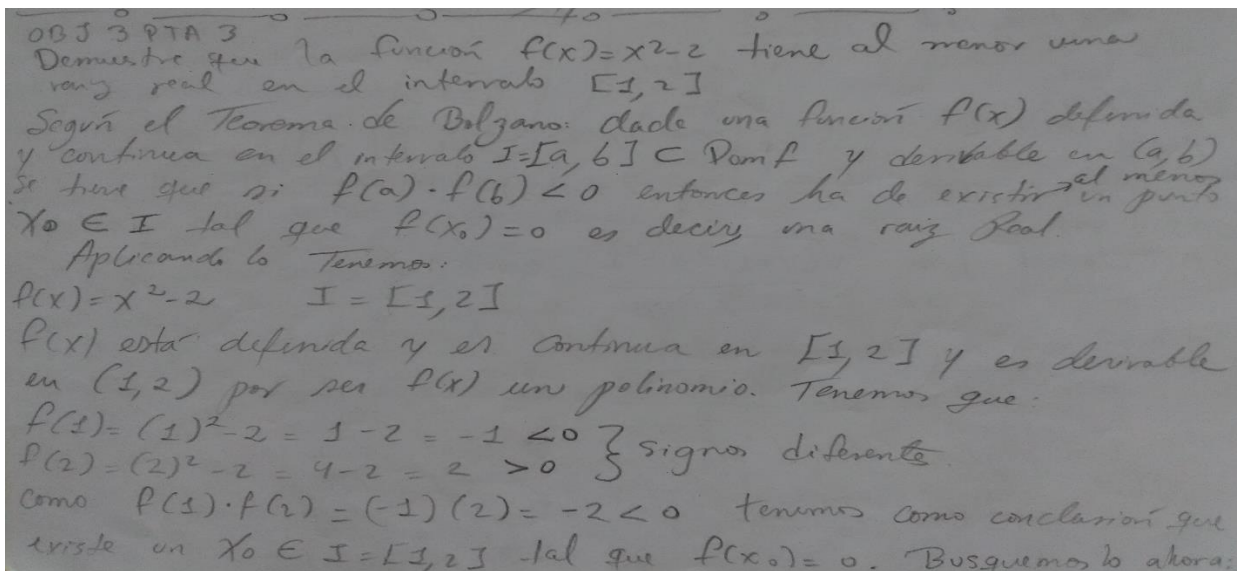 OBJ 3 PTA 3
Demuestre que la función f(x)=x²-2 tiene al menor una
raiz real en el intervalo [1,2]
Según el Teorema de Bolzano: dada una función f(x) definida
y continua en el intervalo I=[a,b] ⊂ Domf y derivable en (a,b)
se tiene que si f(a)·f(b)<0 entonces ha de existir al menos un punto
X₀ ∈ I tal que f(x₀)=0 es decir, una raiz Real.
Aplicando lo Tenemos:
f(x)=x²-2 I=[1,2]
f(x) está definida y es continua en [1,2] y es derivable
en (1,2) por ser f(x) un polinomio. Tenemos que:
f(1)=(1)²-2=1-2=-1 <0 } signos diferente
f(2)=(2)²-2=4-2=2 >0
como f(1)·f(2)=(-1)(2)=-2<0 tenemos como conclusión que
existe un X₀ ∈ I=[1,2] tal que f(x₀)=0. Busquemos lo ahora: